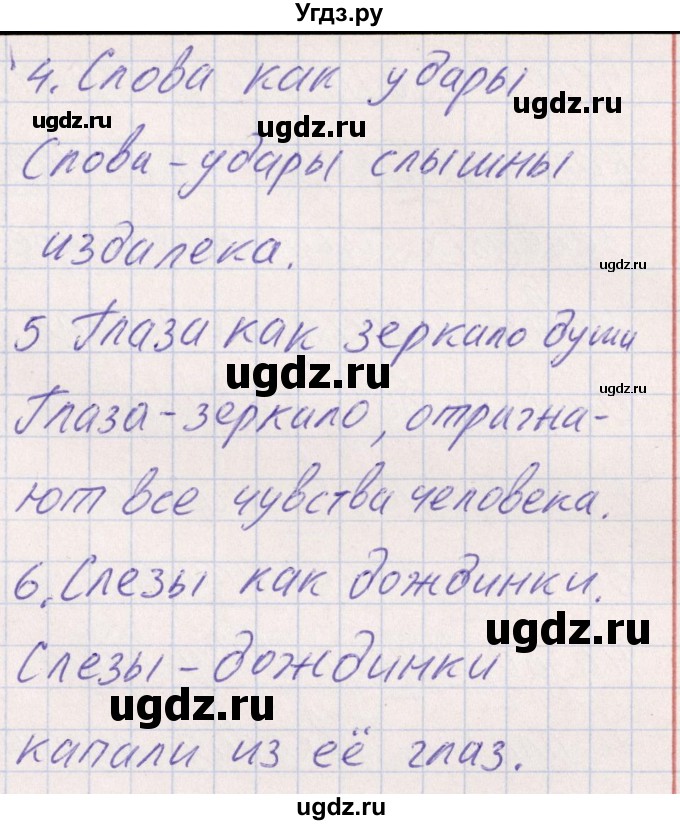 Угдз.ру
4. Слова как удары
ugdz.ru ugdz.ru ugdz.ru
Слова - удары слышны
издалека.
ugdz.ru
5 Глаза как зеркало души
ugdz.ru ugdz.ru
Глаза - зеркало,
ют все чувства человека.
6. Слезы как дождинки.
ugdz.ru
Слезы - дождинки
ugdz.ru
капали из её глаз.
ugdz.ru